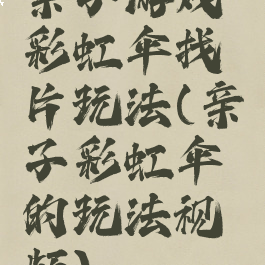 亲子游戏
彩虹伞找
片玩法(亲
子彩虹伞
的玩法视
频)